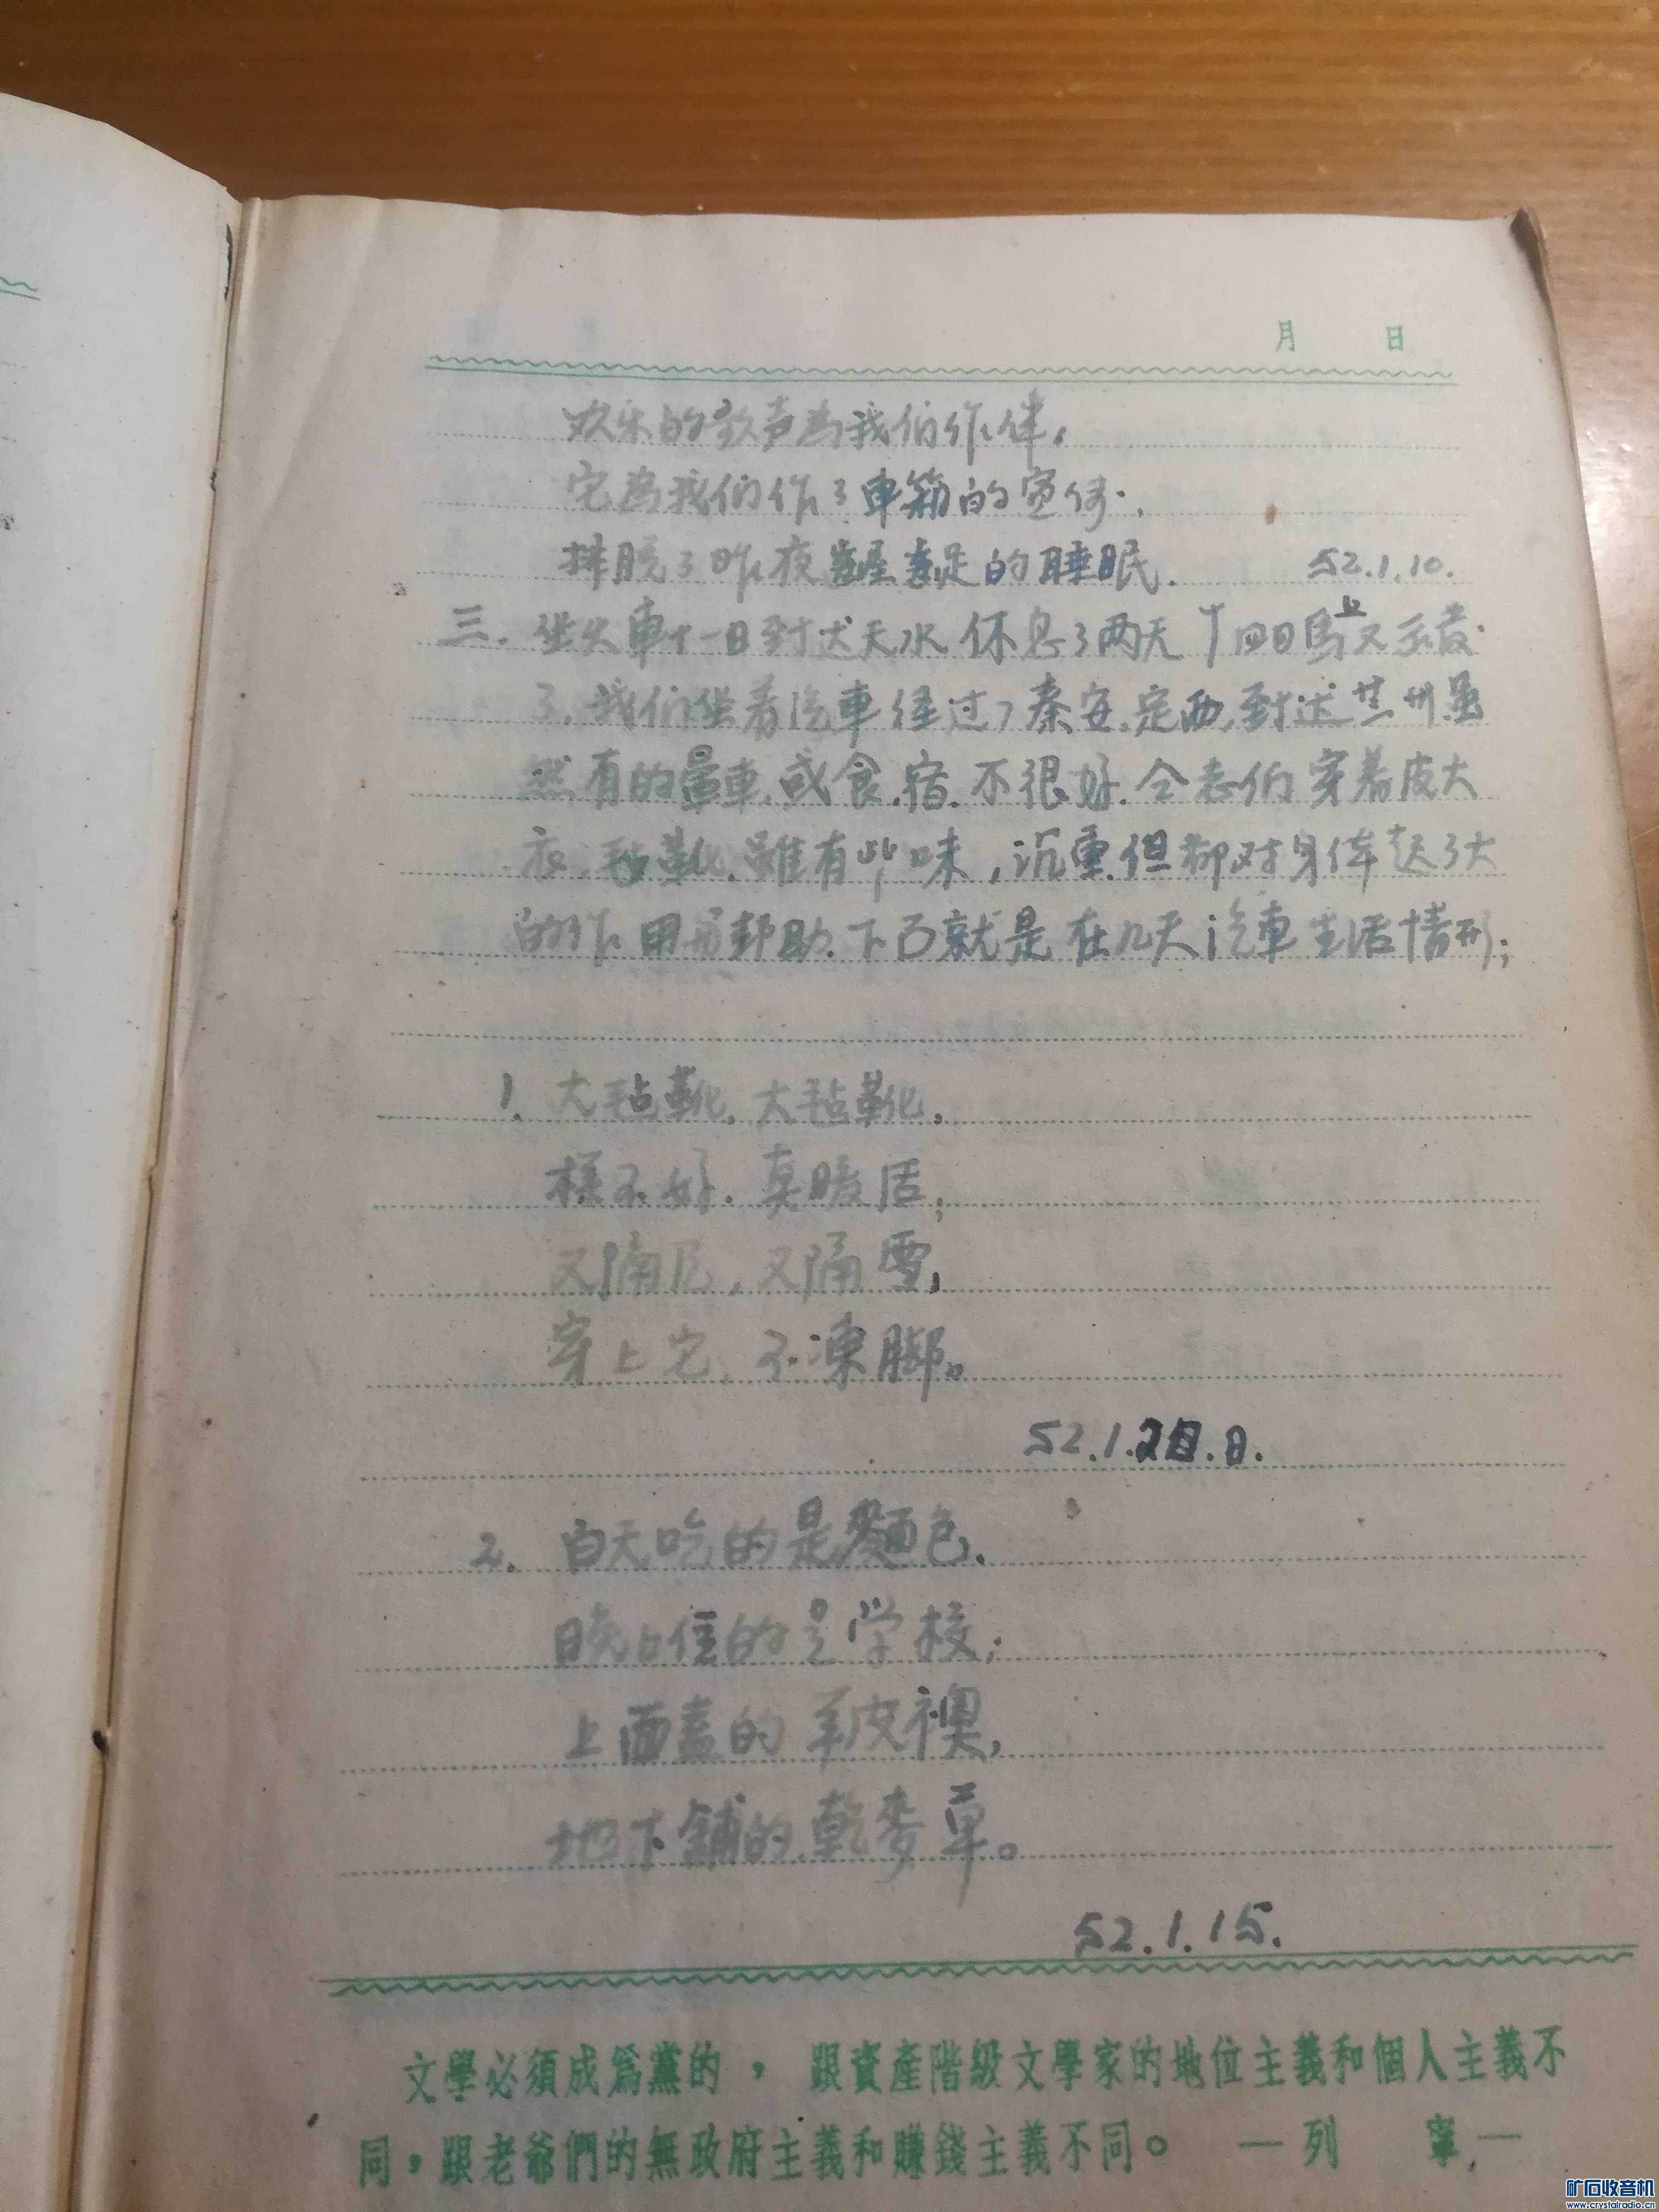 月 日
欢乐的歌声為我们作伴，
它為我们作了車箱的宣传．
摔脱了昨夜 的睡眠． 52.1.10.
三．坐火車十一日到达天水休息了两天十四日馬上又出發
了．我们坐着汽車經过了秦安．定西．到达兰州．虽
然有的暈車．或食．宿．不很好．全志们穿着皮大
衣．毡靴．雖有些味，沉重．但却对身体起了大
的作用帮助．下面就是在几天汽車生活情形；
1. 大毡靴．大毡靴．
様不好．真暖活；
又隔泥，又隔雪，
穿上它．不凍脚。
52.1. .日.
2. 白天吃的是麵包．
晚上住的是学校；
上面蓋的羊皮襖，
地下鋪的乾麥草。
52.1.15.
文學必須成爲黨的，跟資產階級文學家的地位主義和個人主義不
同，跟老爺們的無政府主義和賺錢主義不同。 —列 寧—
矿石收音机
www.crystalradio.cn